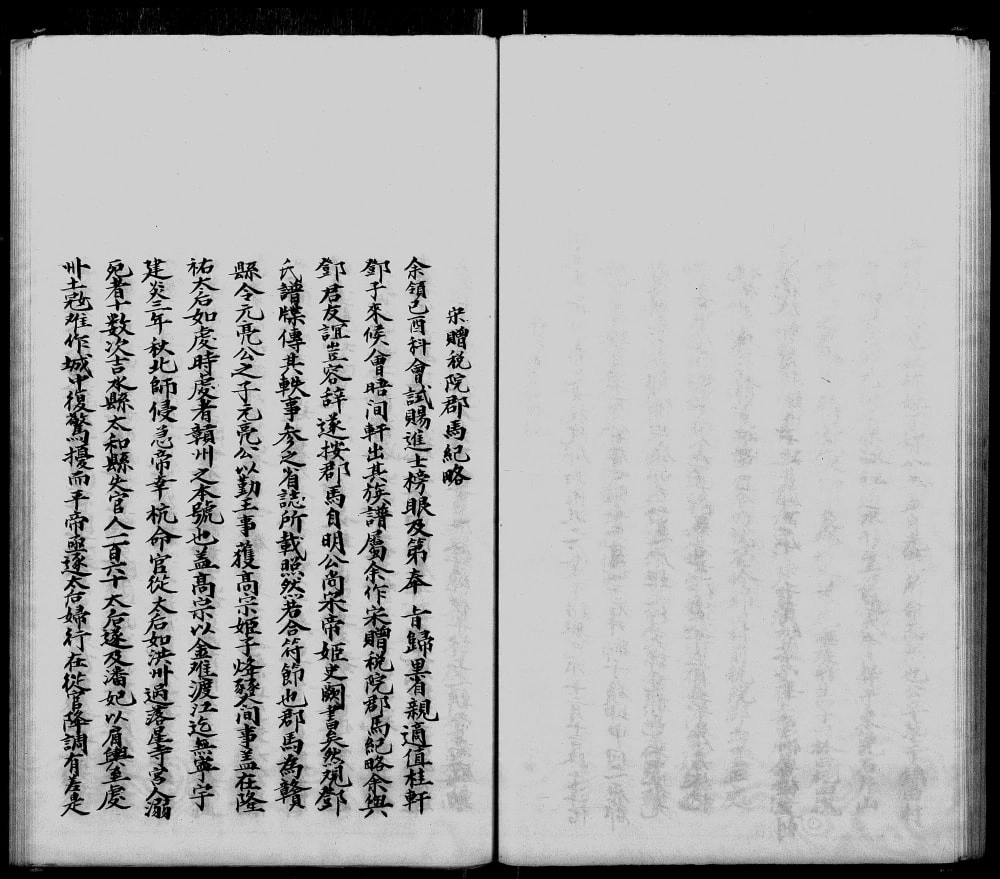 宋贈税院郡馬紀略
余領己酉科會試賜進士榜眼及第奉 旨歸果有親適值桂軒
鄧子來候會晤间軒出其族譜屬余作宋贈税院郡馬紀略余與
鄧君友誼豈容辞遂按郡馬自明公尚宋帝姬史闕書矣然观鄧
氏譜牒傳其軼事参之省誌所載照然若合符節也郡馬為贛
縣令元亮公之子元亮公以勤王事獲高宗姬于烽燧间事盖在隆
祐太后如虔時虔者贛州之本號也盖高宗以金难渡江迄無寧宇
建炎三年秋北師侵急帝幸杭命官從太后如洪州過落星寺宫人溺
死者十数次吉水縣太和縣失官人一百六十太后遂及潘妃以肩輿至虔
州土冦难作城中復驚擾而平帝亟遂太后婦行在從官降調有差是